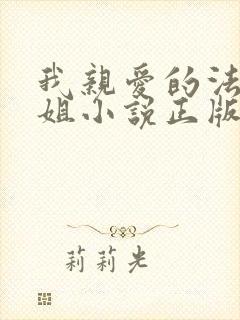 我親愛的法
姐小説正版
莉莉光